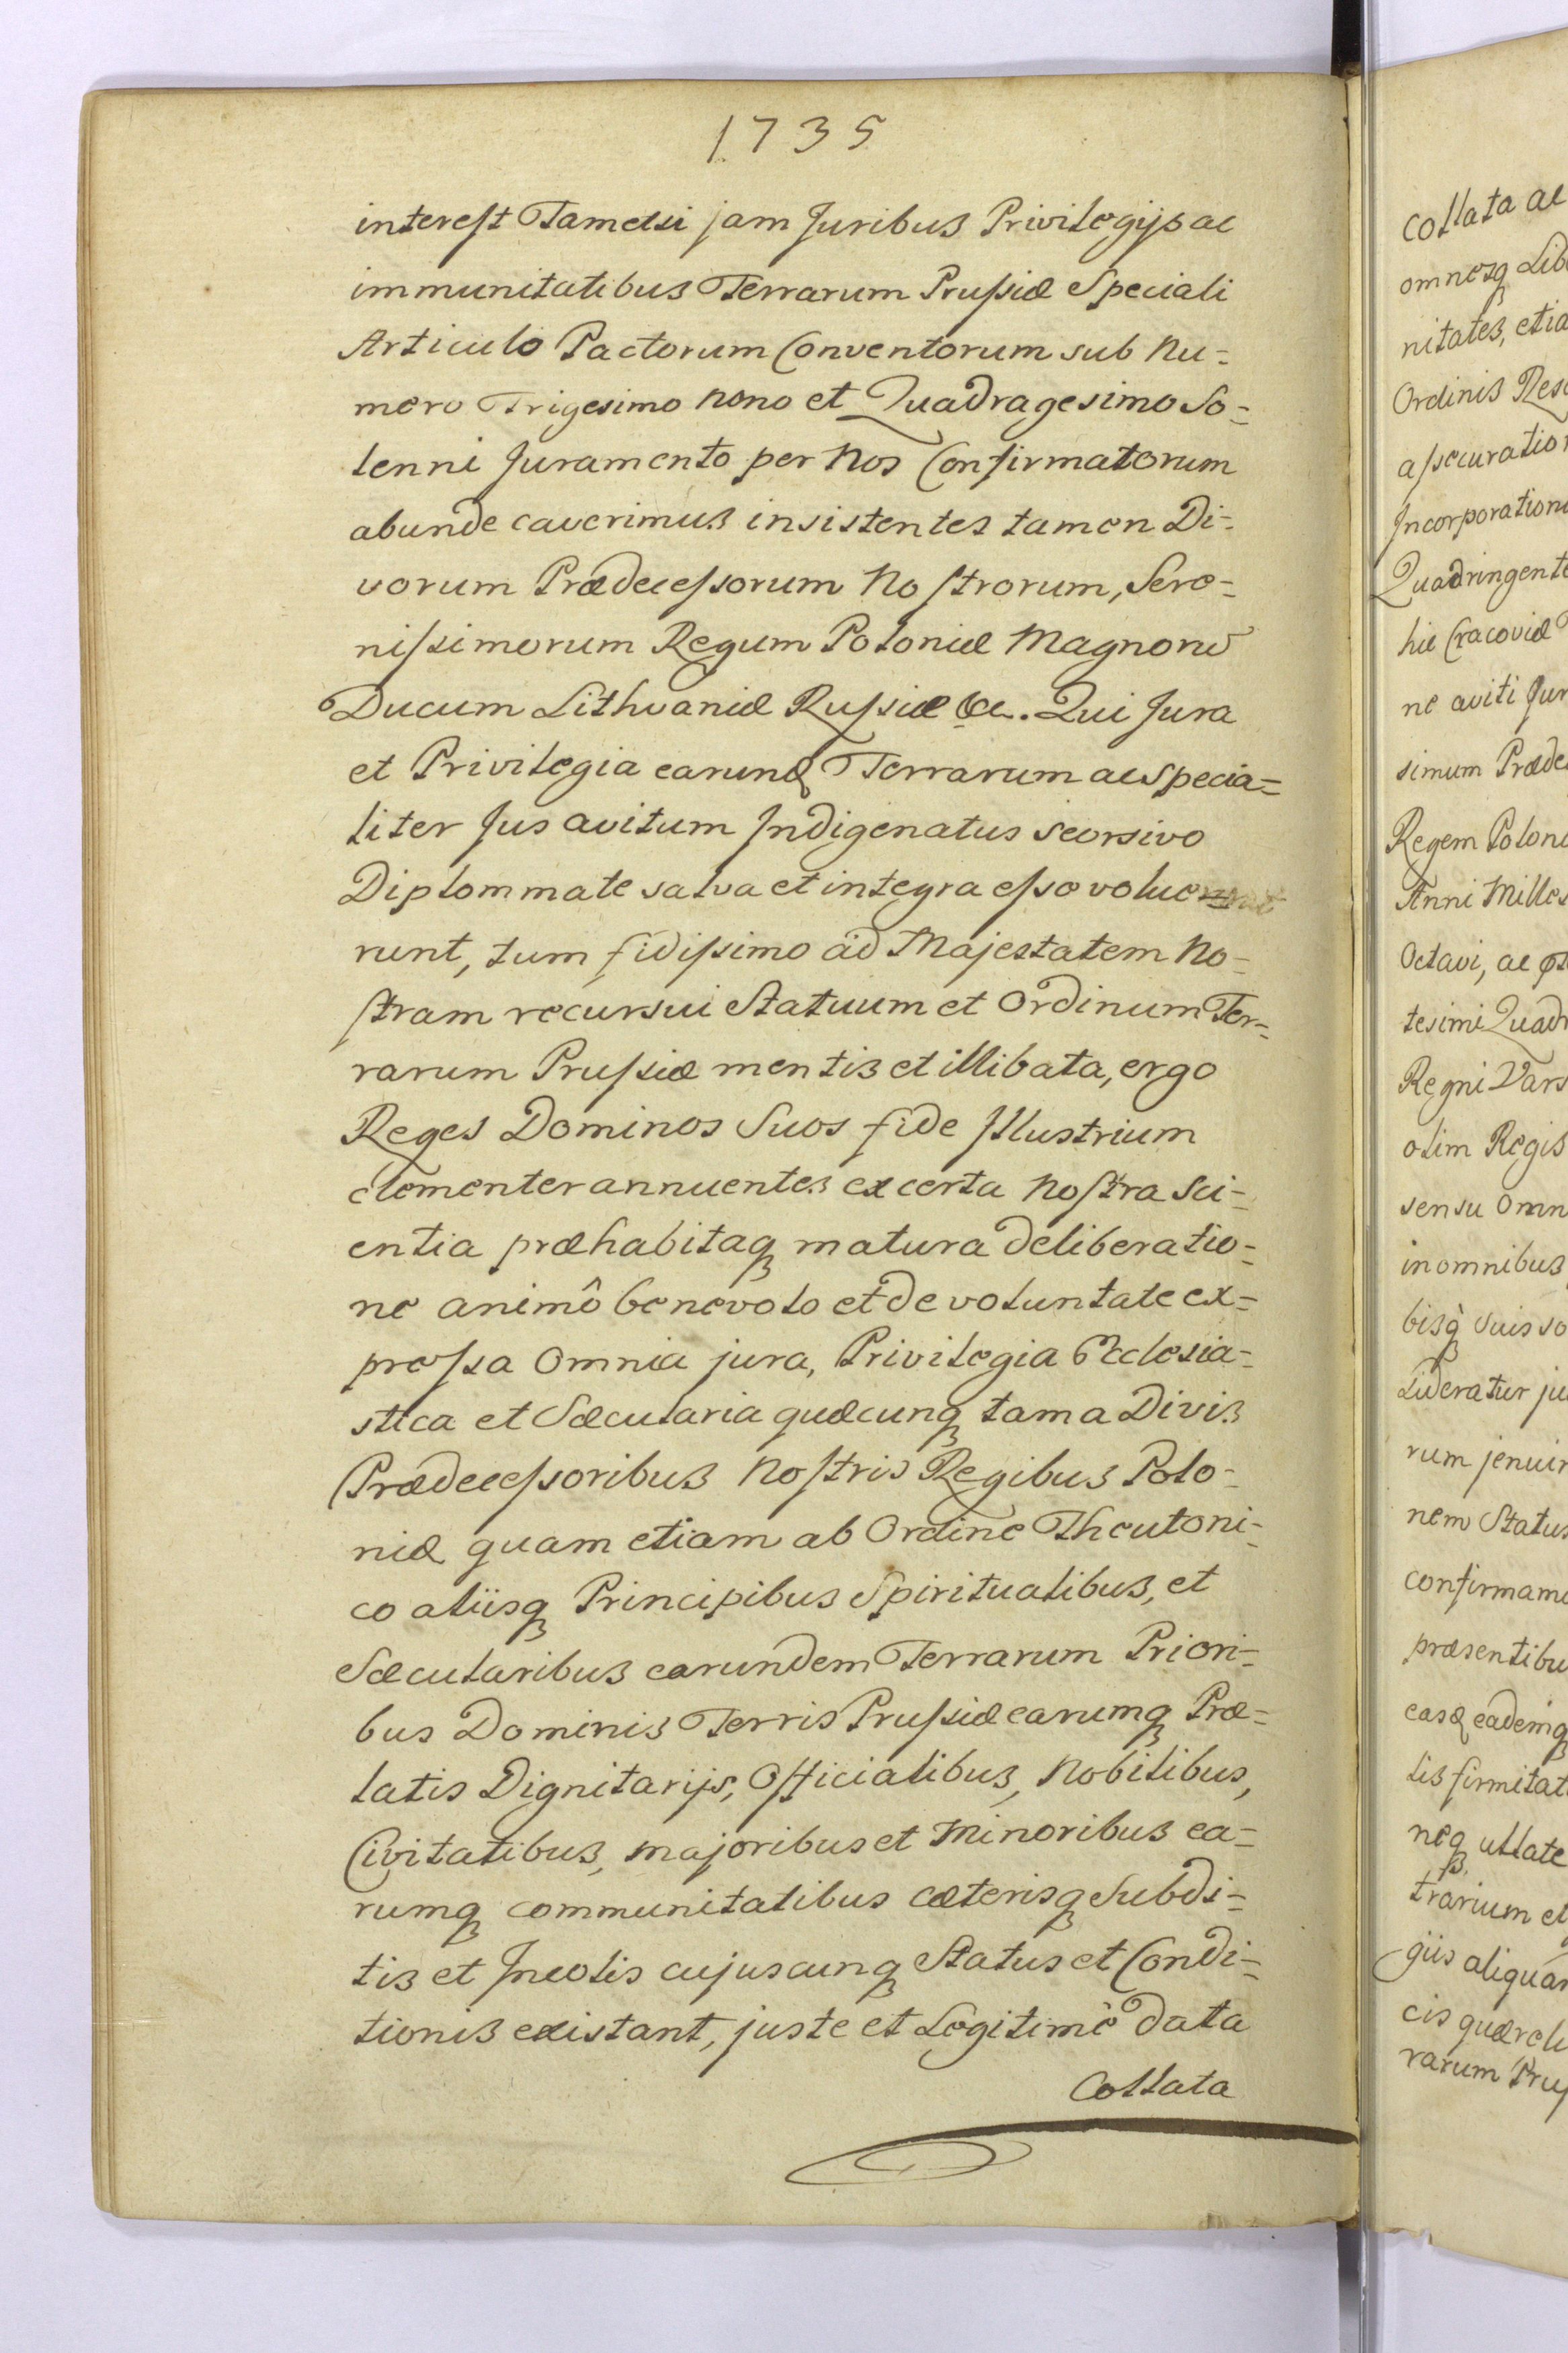 1735
interest Tametsi jam Juribus Privilegijs ac
immunitatibus Terrarum Prussiæ Speciali
Articulo Pactorum Conventorum sub Nu=
mero Trigesimo nono et Quadragesimo So=
lenni Juramento per Nos Confirmatorum
abunde caverimus insistentes tamen Di=
vorum Prædecessorum Nostrorum, Sere=
nissimorum Regum Poloniæ Magnorũ
Ducum Lithvaniæ Russiæ &c. Qui Jura
et Privilegia earund Terrarum ac specia=
liter Jus avitum Indigenatus seorsivo
Diplommate salva et integra esse volue
runt, tum fidissimo ad Majestatem No=
stram recursui Statuum et Ordinum Ter=
rarum Prussiæ mentis et illibata, ergo
Reges Dominos Suos fide Illustrium
clementer annuentes ex certa Nostra Sci=
entia præhabitaq matura deliberatio=
ne animô benevolo et de voluntate ex=
pressa Omnia jura, Privilegia Ecclesia=
stica et Sæcularia quæcunq tam a Divis
Prædecessoribus Nostris Regibus Polo=
niæ quam etiam ab Ordine Theutoni=
co aliisq Principibus Spiritualibus, et
Sæcularibus earundem Terrarum Priori=
bus Dominis Terris Prussiæ earumq Præ=
latis Dignitarijs, Officialibus, Nobilibus,
Civitatibus, majoribus et Minoribus ea=
rumq communitatibus cæterisq Subdi=
tis et Incolis cujuscunq Status et Condi=
tionis existant, juste et Legitimè data
Collata
collata ac
omnesq Lib
nitates, etia
Ordinis
assecuration
Incorporation
Quadringente
hic Cracoviæ
ne aviti Jur
simum Præde
Regem Polon
Anni Milles
Octavi, ac
tesimi Quadr
Regni Vars
olim Regis
sensu Omn
in omnibus
bisq suis
sideratur ju
rum
nem Status
confirmam
præsentibu
easq eademq
lis firmitat
neq ullate
trarium et
giis aliquan
cis quærele
rarum Prus